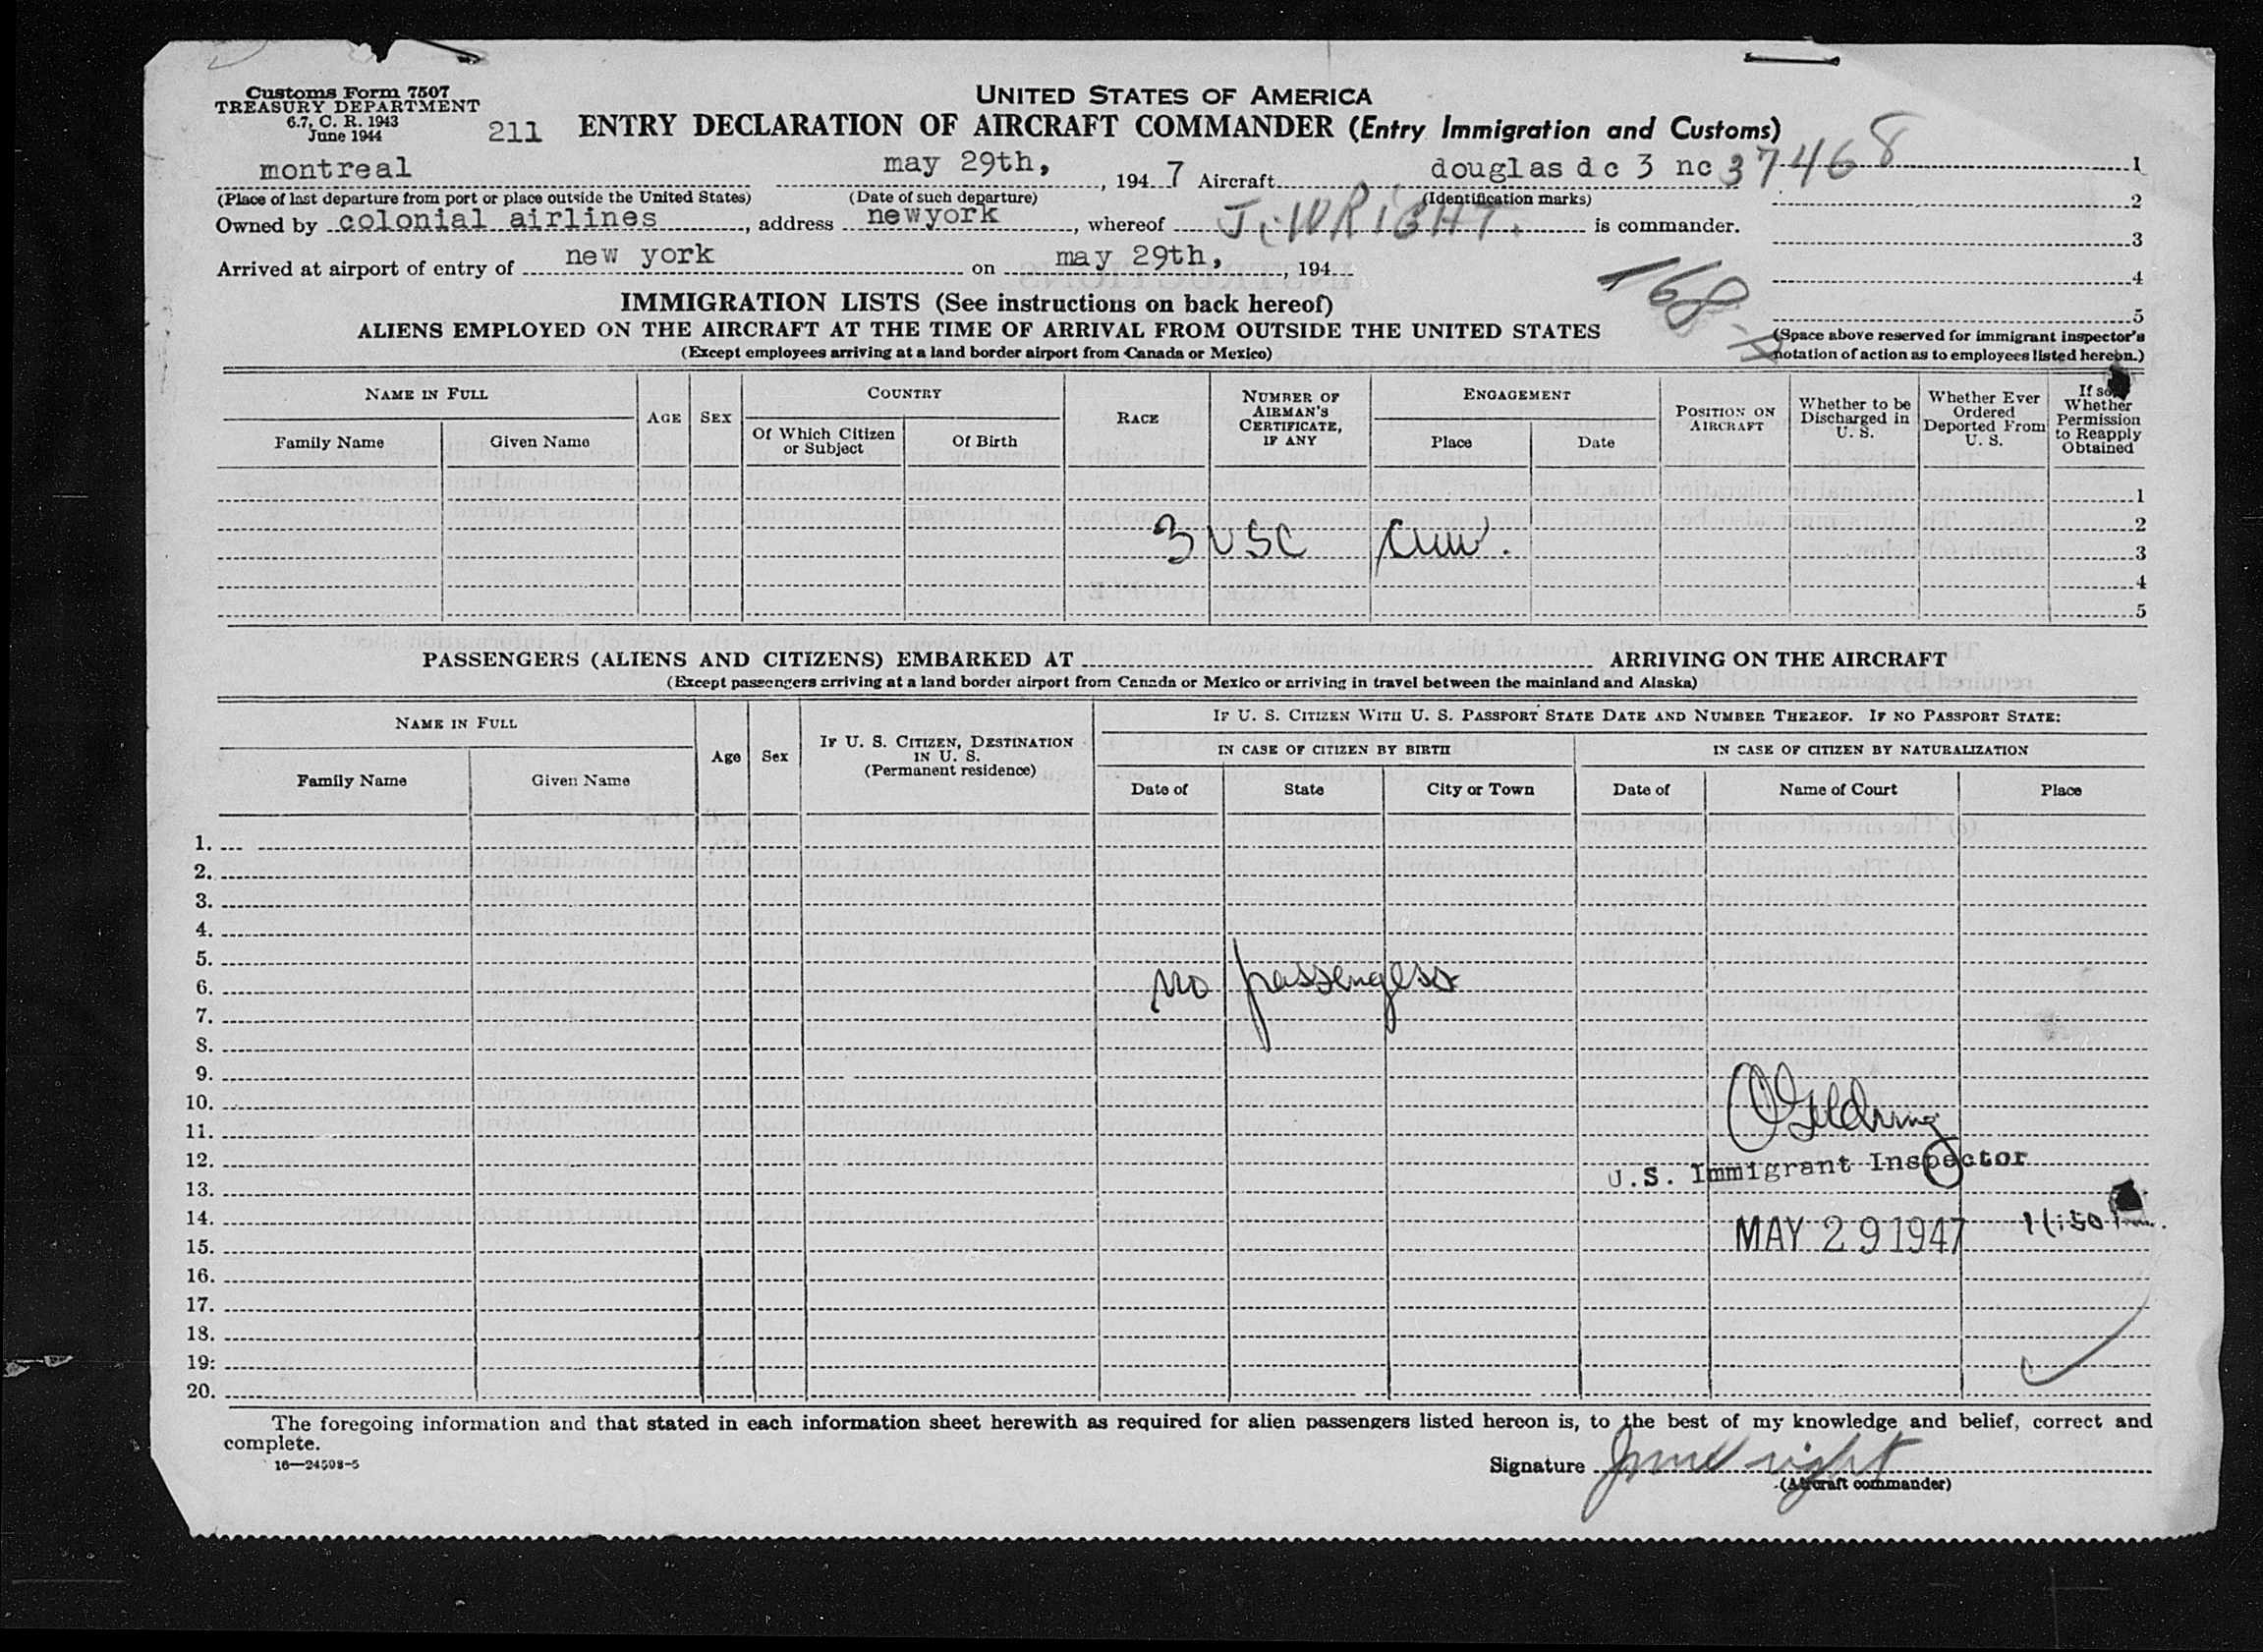 Customs Form 7507
TREASURY DEPARTMENT
6.7, C. R. 1943
June 1944
UNITED STATES OF AMERICA
211 ENTRY DECLARATION OF AIRCRAFT COMMANDER (Entry Immigration and Customs)
montreal may 29th, , 194 7 Aircraft douglas d c 3 nc 37468 1
(Place of last departure from port or place outside the United States) (Date of such departure) (Identification marks) 2
Owned by colonial airlines , address newyork , whereof J. WRIGHT. is commander.
3
Arrived at airport of entry of new york on may 29th, , 194
4
168
IMMIGRATION LISTS (See instructions on back hereof)
5
ALIENS EMPLOYED ON THE AIRCRAFT AT THE TIME OF ARRIVAL FROM OUTSIDE THE UNITED STATES
(Space above reserved for immigrant inspector's
notation of action as to employees listed hereon.)
(Except employees arriving at a land border airport from Canada or Mexico)
NAME IN FULL
Family Name Given Name
AGE SEX
COUNTRY
Of Which Citizen
or Subject
Of Birth
RACE
NUMBER OF
AIRMAN'S
CERTIFICATE,
IF ANY
ENGAGEMENT
Place Date
POSITION ON
AIRCRAFT
Whether to be
Discharged in
U. S.
Whether Ever
Ordered
Deported From
U. S.
If so,
Whether
Permission
to Reapply
Obtained
1
2
3 USC Crew.
3
4
5
PASSENGERS (ALIENS AND CITIZENS) EMBARKED AT ARRIVING ON THE AIRCRAFT
(Except passengers arriving at a land border airport from Canada or Mexico or arriving in travel between the mainland and Alaska)
NAME IN FULL
Family Name Given Name
Age Sex
IF U. S. CITIZEN, DESTINATION
IN U. S.
(Permanent residence)
IF U. S. CITIZEN WITH U. S. PASSPORT STATE DATE AND NUMBER THEREOF. IF NO PASSPORT STATE:
IN CASE OF CITIZEN BY BIRTH IN CASE OF CITIZEN BY NATURALIZATION
Date of State City or Town Date of Name of Court Place
1.
2.
3.
4.
5.
6. no passengers
7.
8.
9.
10.
11.
12. U.S. Immigrant Inspector
13.
14.
15. MAY 29 1947 11:50
16.
17.
18.
19.
20.
The foregoing information and that stated in each information sheet herewith as required for alien passengers listed hereon is, to the best of my knowledge and belief, correct and
complete.
16—24598-5
Signature
(Aircraft commander)